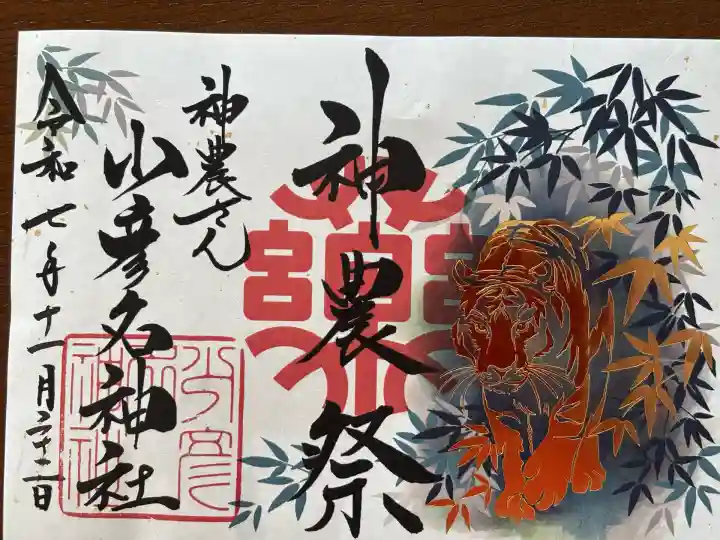 神農祭
神農さん
少彦名神社
令和七年十一月二十二日